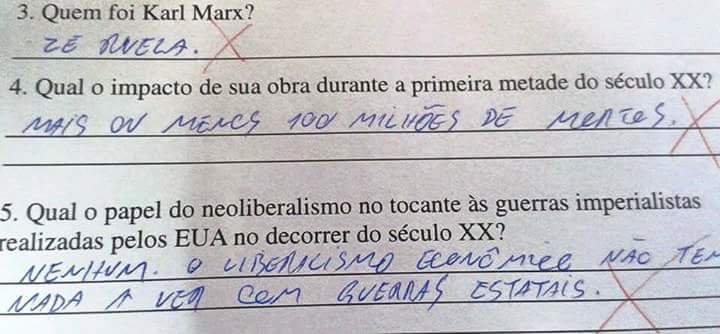 3. Quem foi Karl Marx?
ZÉ RUELA.
4. Qual o impacto de sua obra durante a primeira metade do século XX?
MAIS OU MENOS 100 MILHÕES DE MORTOS.
5. Qual o papel do neoliberalismo no tocante às guerras imperialistas
realizadas pelos EUA no decorrer do século XX?
NENHUM. O LIBERALISMO ECONÔMICO NÃO TEM
NADA A VER COM GUERRAS ESTATAIS.